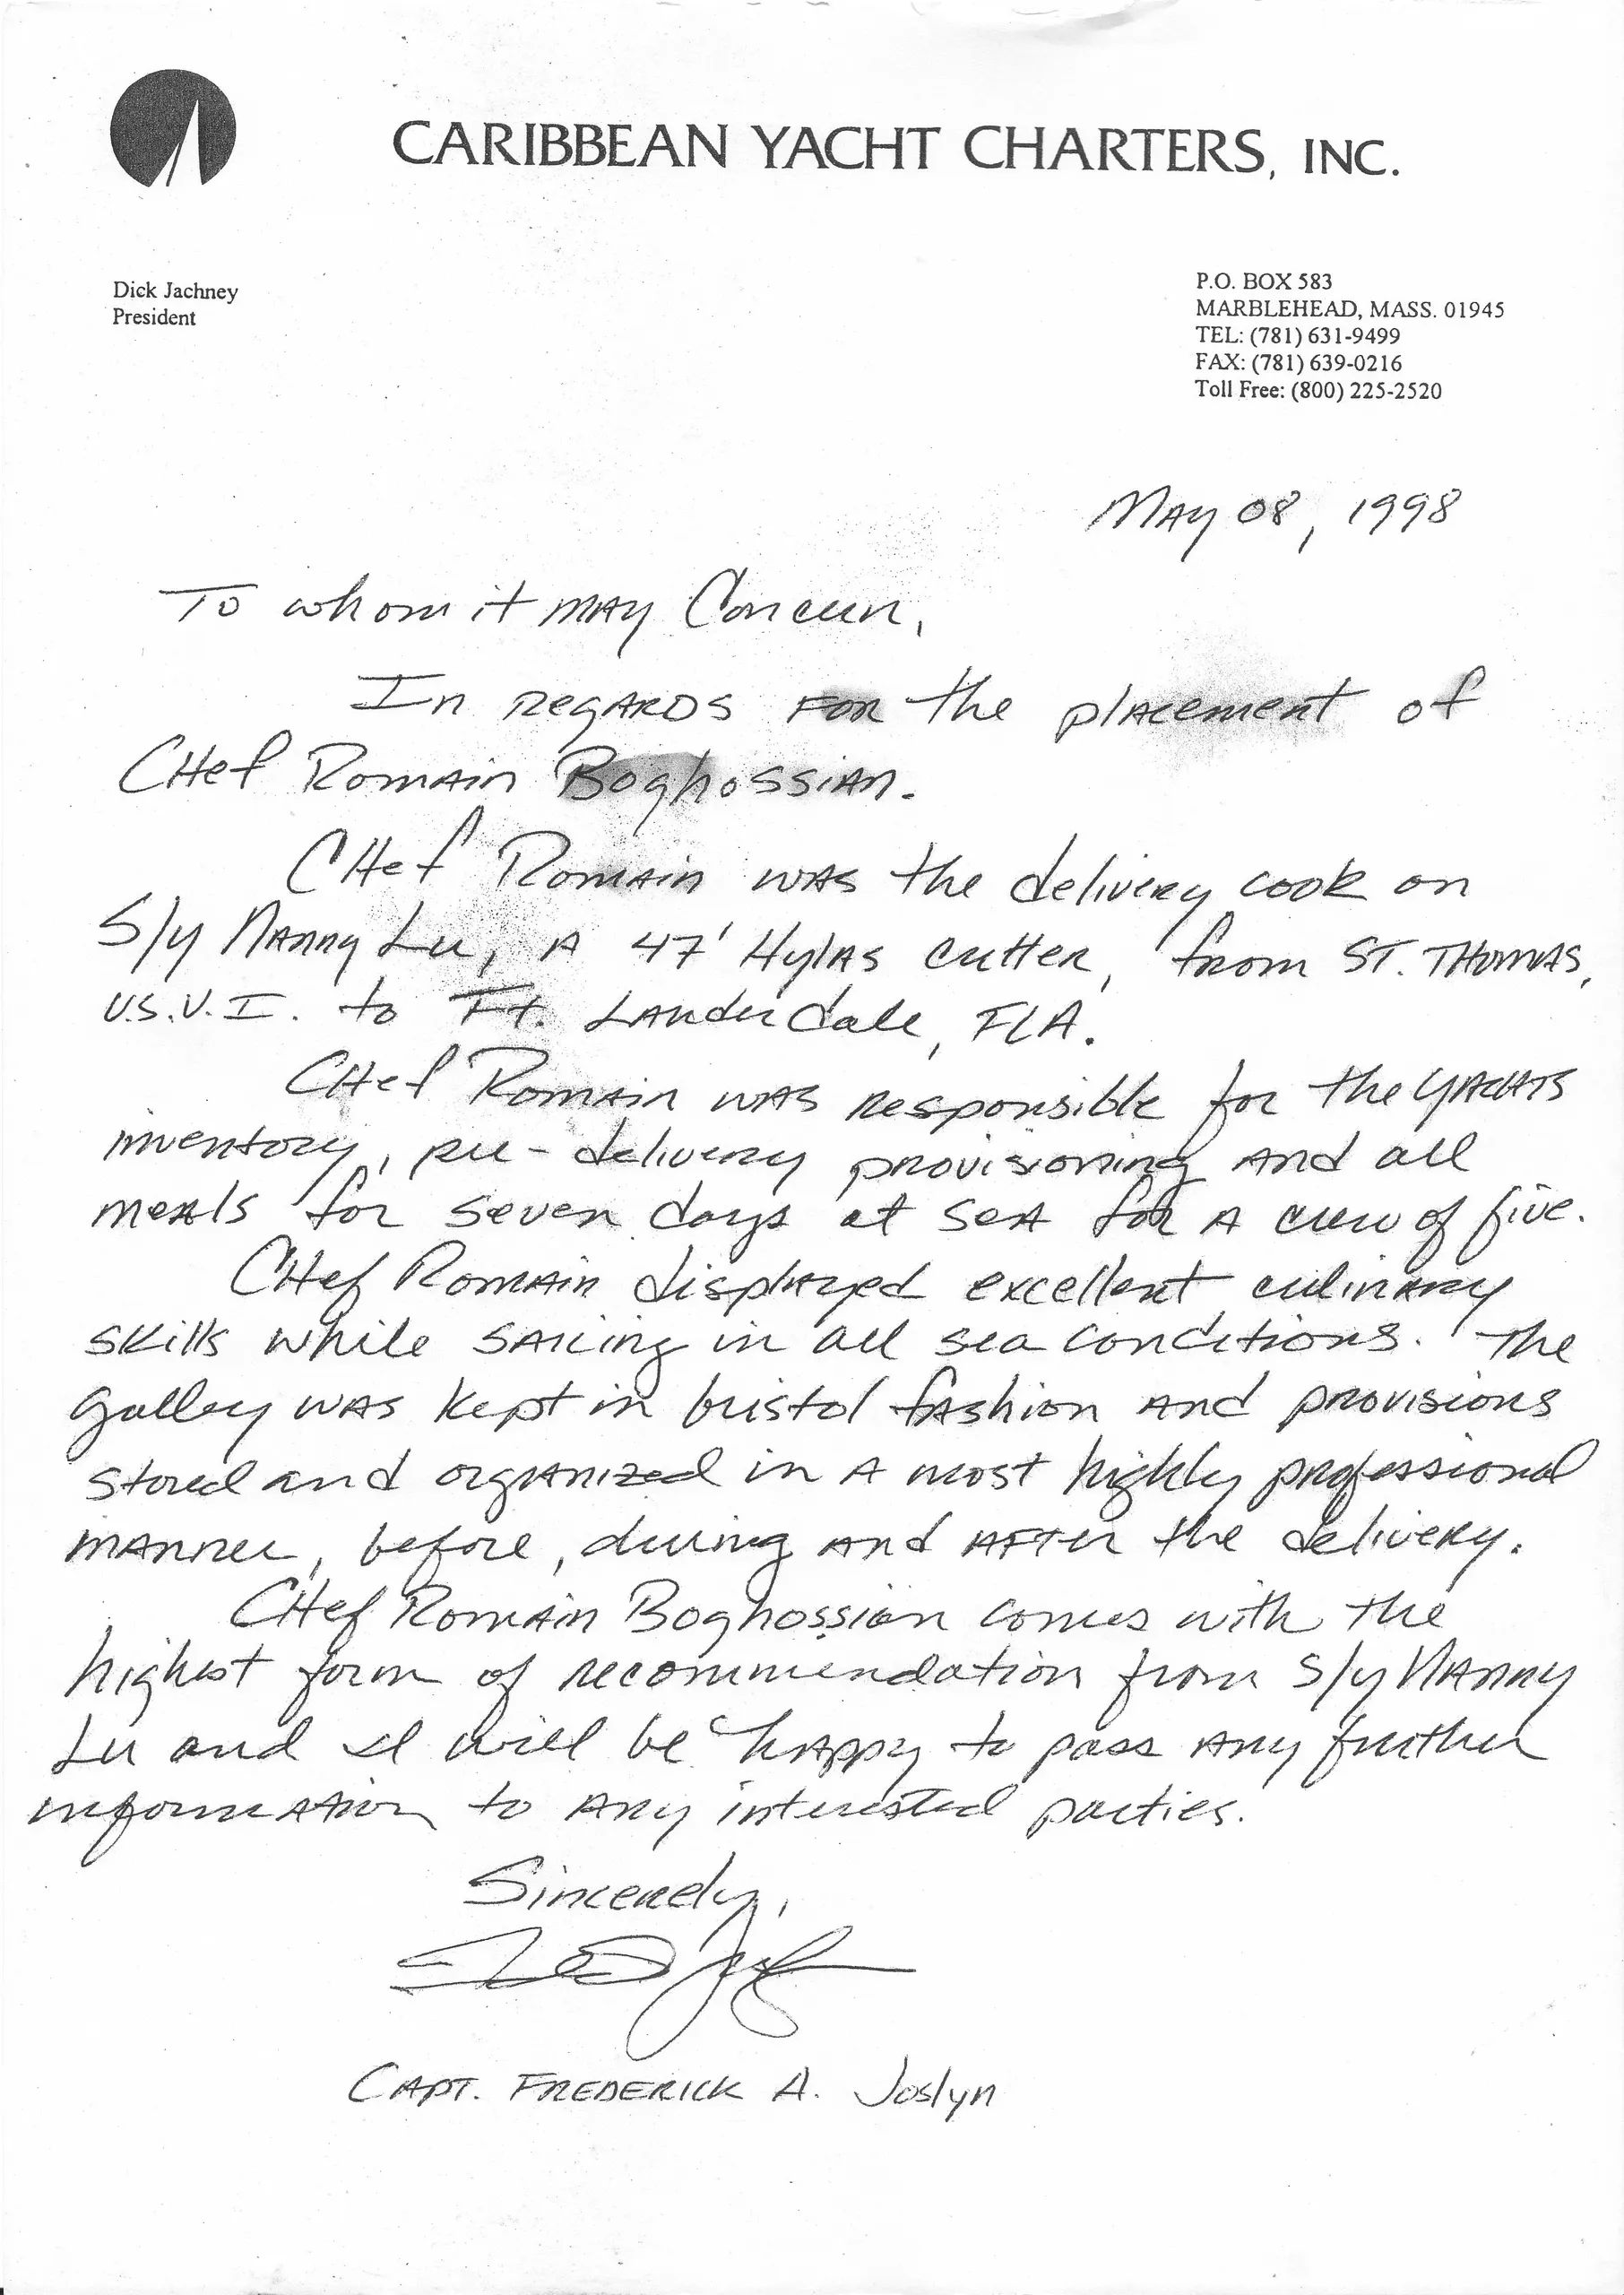 CARIBBEAN YACHT CHARTERS, INC.
Dick Jachney
President
P.O. BOX 583
MARBLEHEAD, MASS. 01945
TEL: (781) 631-9499
FAX: (781) 639-0216
Toll Free: (800) 225-2520
May 08, 1998
To whom it may Concern,
In regards for the placement of
Chef Romain Boghossian.
Chef Romain was the delivery cook on
S/y Nanny Lu, A 47' Hylas cutter, from ST. THOMAS,
U.S.V.I. to Ft. Lauderdale, FLA.
Chef Romain was responsible for the yachts
inventory, pre-delivery provisioning and all
meals for seven days at sea for a crew of five.
Chef Romain displayed excellent culinary
skills while sailing in all sea conditions. The
galley was kept in bristol fashion and provisions
stored and organized in a most highly professional
manner, before, during and after the delivery.
Chef Romain Boghossian comes with the
highest form of recommendation from S/y Nanny
Lu and I will be happy to pass any further
information to any interested parties.
Sincerely,
CAPT. FREDERICK A. Joslyn